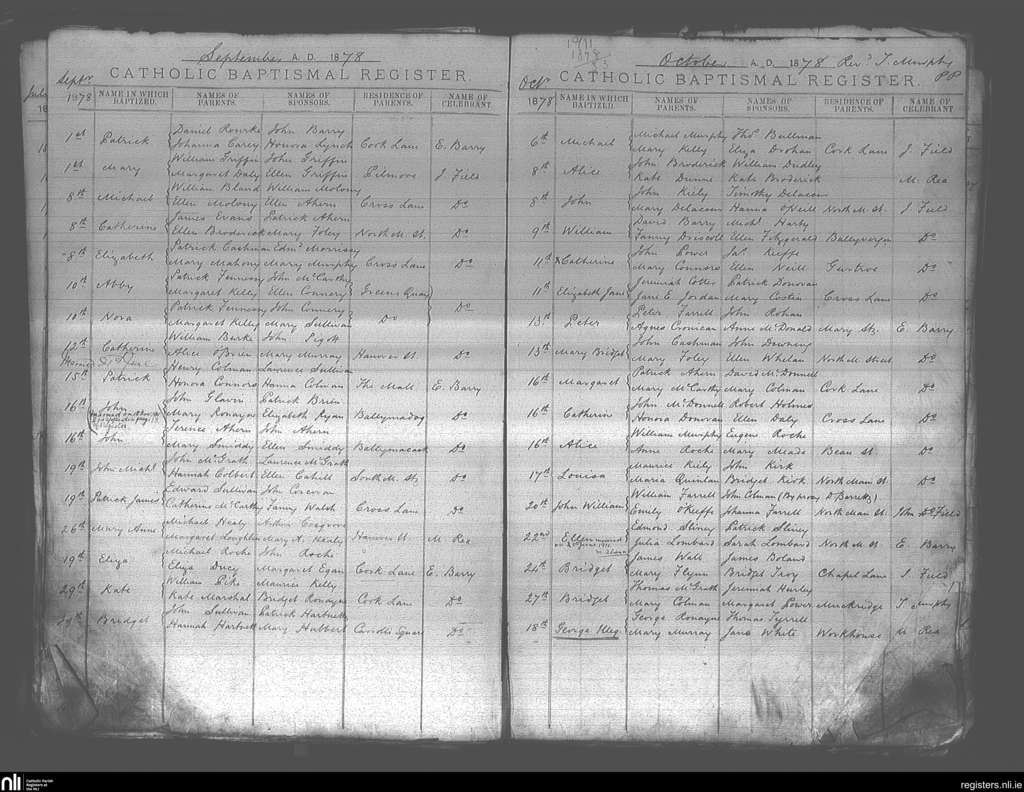 September A. D. 1878
CATHOLIC BAPTISMAL REGISTER.
Septr 1878 NAME IN WHICH BAPTIZED. NAMES OF PARENTS. NAMES OF SPONSORS. RESIDENCE OF PARENTS. NAME OF CELEBRANT.
Daniel Rourke John Barry
1st Patrick Johanna Carey Honora Lynch Cook Lane E. Barry
William Griffin John Griffin
1st Mary Margaret Daly Ellen Griffin J. Field
William Bland William Molony
8th Michael Ellen Molony Ellen Ahern Cross Lane Do
James Evans Patrick Ahern
8th Catherine Ellen Broderick Mary Foley North M. St. Do
Patrick Cashman Edmd Morrissey
8th Elizabeth Mary Mahony Mary Murphy Cross Lane Do
Patrick Fennessy John McCarthy
10th Abby Margaret Kelly Ellen Connery Greens Quay
Patrick Fennessy John Connery Do
10th Nora Margaret Kelly Mary Sullivan Do
William Burke John Pigott
12th Catherine Alice O'Brien Mary Murray Hanover St. Do
Henry Colman Laurence Sullivan
15th Patrick Honora Connors Hanna Colman The Mall E. Barry
John Glavin Patrick Brien
16th John Mary Ronayne Elizabeth Ryan Ballymadog Do
Terence Ahern John Ahern
16th John Mary Smiddy Ellen Smiddy Ballymacask Do
John McGrath Laurence McGrath
19th John Michl Hannah Colbert Ellen Cahill South M. St. Do
Edward Sullivan John Corcoran
19th Patrick James Catherine McCarthy Fanny Walsh Cross Lane Do
Michael Healy Arthur Cosgrove
26th Mary Anne Margaret Loughlin Mary A. Healy Hanover St M. Rea
Michael Roche John Roche
19th Eliza Eliza Ducy Margaret Egan Cook Lane E. Barry
William Pike Maurice Kelly
29th Kate Kate Marshal Bridget Ronayne Cook Lane Do
John Sullivan Patrick Hartnett
29th Bridget Hannah Hartnett Mary Hubbert Square Do
October A. D. 1878 Revd T. Murphy PP
CATHOLIC BAPTISMAL REGISTER.
Octr 1878 NAME IN WHICH BAPTIZED. NAMES OF PARENTS. NAMES OF SPONSORS. RESIDENCE OF PARENTS. NAME OF CELEBRANT
Michael Murphy Thos Bullman
6th Michael Mary Kelly Eliza Drohan Cook Lane J. Field
John Broderick William Dudley
8th Alice Kate Dunne Kate Broderick M. Rea
John Kiely Timothy Delacour
8th John Mary Delacour Hanna O'Neill North M. St. J. Field
David Barry Michl Harty
9th William Fanny Driscoll Ellen Fitzgerald Ballyvergin Do
John Power Jas. Keeffe
11th Catherine Mary Connors Ellen Neill Gurtroe Do
Jeremiah Cotter Patrick Donovan
11th Elizabeth Jane Jane E. Jordan Mary Costin Cross Lane Do
Peter Farrell John Rohan
13th Peter Agnes Cronican Anne McDonald Mary St. E. Barry
John Cashman John Downing
13th Mary Bridget Mary Foley Ellen Whelan North M. Street Do
Patrick Ahern David McDonnell
16th Margaret Mary McCarthy Mary Colman Cook Lane Do
John McDonnell Robert Holmes
16th Catherin Honora Donovan Ellen Daly Cross Lane Do
William Murphy Eugene Roche
16th Alice Anne Roche Mary Meade Beau St. Do
Maurice Kiely John Kirk
17th Louisa Maria Quinlan Bridget Kirk North Main St Do
William Farrell John Colman (By proxy D. Barrett)
20th John William Emily O'Keeffe Johanna Farrell North Main St. John D. Field
Edmond Sliney Patrick Sliney
22nd Ellen Julia Lombard Sarah Lombard North M. St E. Barry
James Walk James Boland
24th Bridget Mary Flynn Bridget Troy Chapel Lane J. Field
Thomas McGrath Jeremiah Hurley
27th Bridget Mary Colman Margaret Power Muckridge T. Murphy
George Ronayne Thomas Tyrrell
18th George Illeg. Mary Murray Jane White Workhouse M. Rea
nli Catholic Parish Registers at the NLI
registers.nli.ie